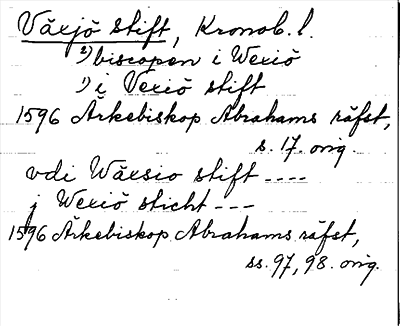 Växjö stift, Kronob. l.
2) biscopen i Wexiö
1) i Vexiö stift
1596 Ärkebiskop Abrahams räfst,
s. 17. orig.
vdi Wäxsio stift ----
j Wexiö sticht ---
1596 Ärkebiskop Abrahams räfst,
ss. 97, 98. orig.